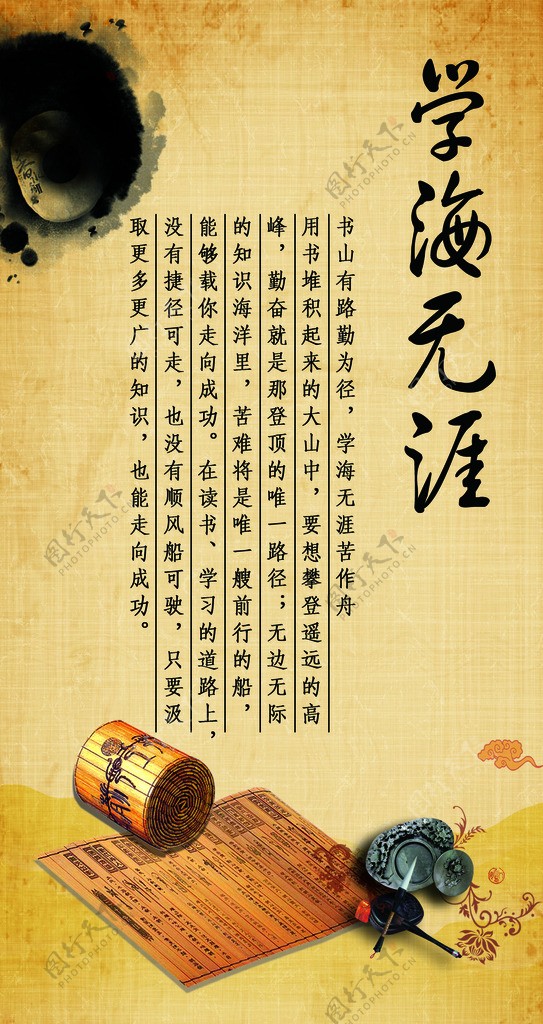 学海无涯
书山有路勤为径，学海无涯苦作舟
用书堆积起来的大山中，要想攀登遥远的高
峰，勤奋就是那登顶的唯一路径；无边无际
的知识海洋里，苦难将是唯一一艘前行的船，
能够载你走向成功。在读书、学习的道路上，
没有捷径可走，也没有顺风船可驶，只要汲
取更多更广的知识，也能走向成功。
图行天下
PHOTOPHOTO.CN